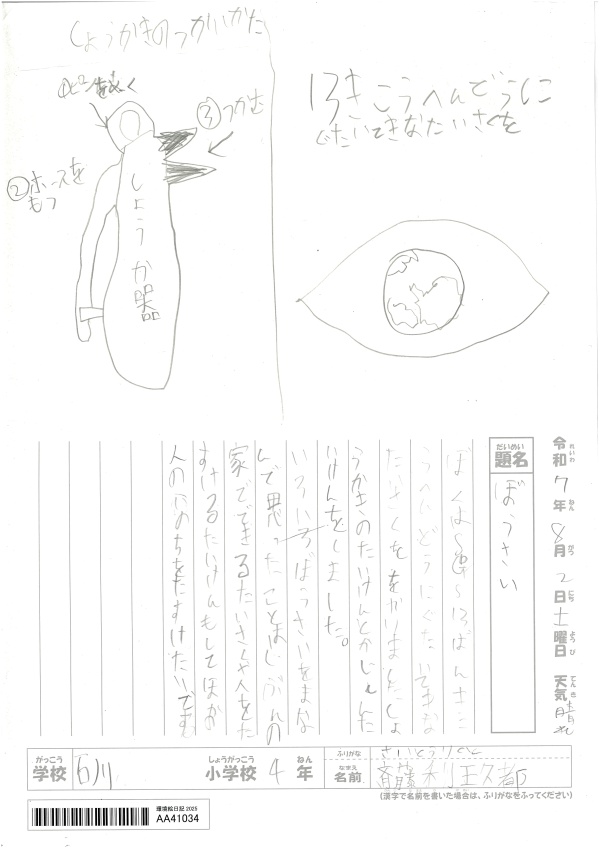 しょうかきのつかいかた
①ピンをぬく
③つかむ
②ホースを
もつ
しょうか器
13きこうへんどうに
ぐたいてきなたいさくを
令和7年8月2日土曜日 天気 晴れ
れいわ ねん がつ にち ようび てんき
だいめい
題名
ぼうさい
うへんどうにぐたいてきな
たいさくををかりましたしょ
うかきのたいけんとかじしんた
いけんをしました。
いろいろぼうさいをまな
んで思ったことはじぶんの
家でできるたいさくや人をた
すけるたいけんもしてほかの
人のいのちをたすけたいです
がっこう
学校
石川
しょうがっこう
小学校
4
ねん
年
ふりがな
さいとうりくと
なまえ
名前
斉藤
都
(漢字で名前を書いた場合は、ふりがなをふってください)
環境絵日記 2025
AA41034